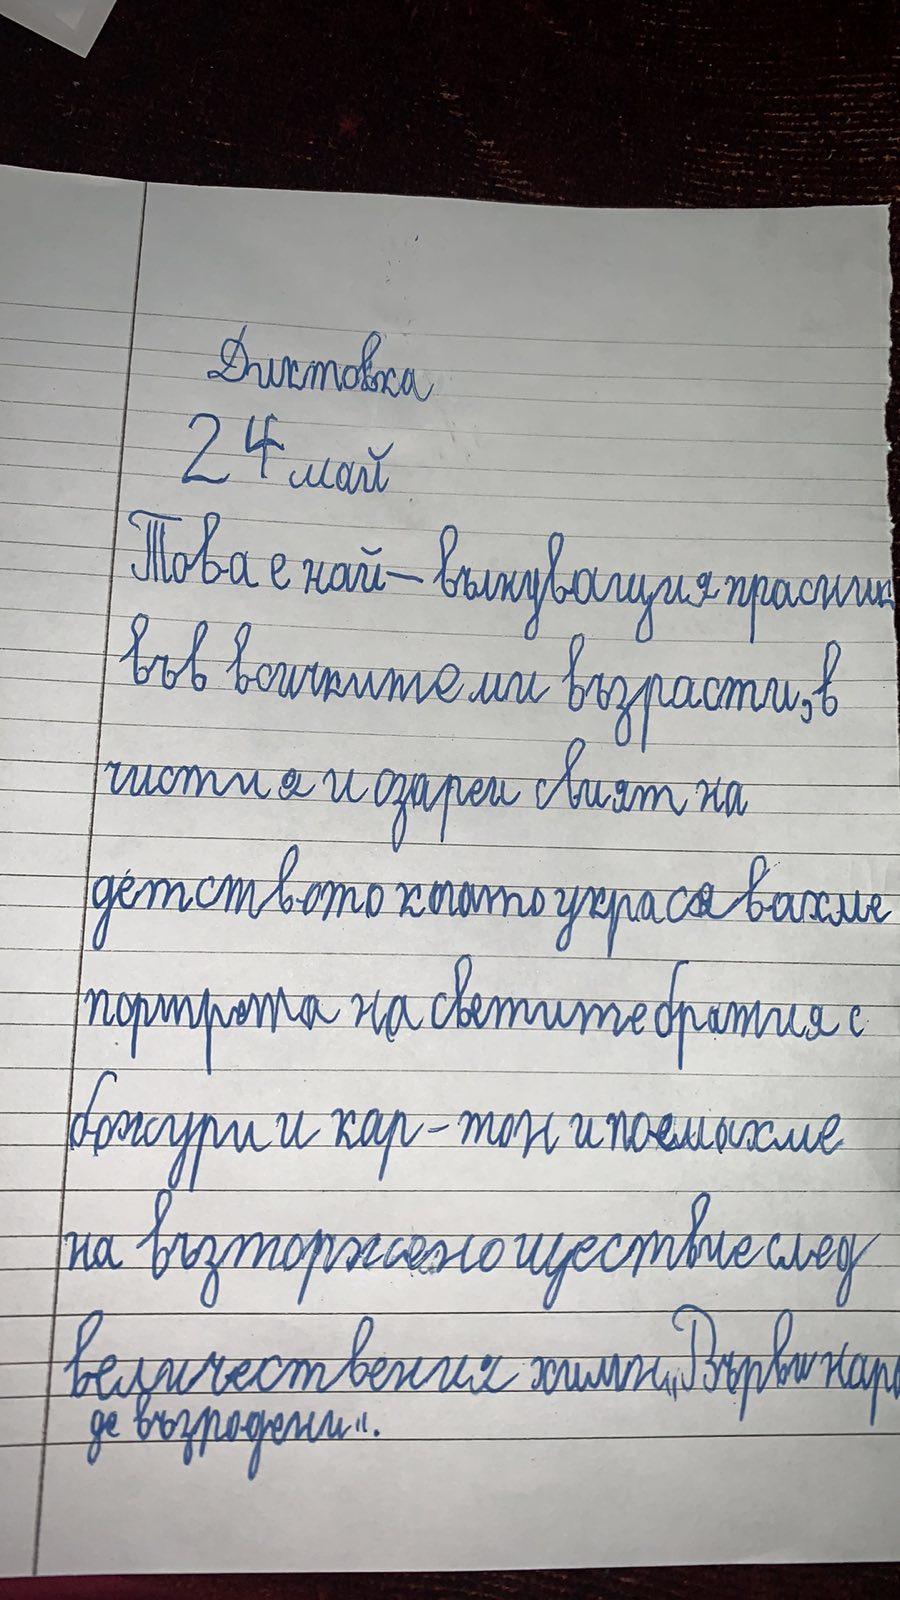 Диктовка
24 май
Това е най-вълнуващия прасник
във всичките ми възрасти, в
чистия и озарен свият на
детството когато украсявахме
портрета на светите братия с
божури и кар-тон и поемахме
на възторжено шествие след
величествения химн „Върви наро
де възродени“.